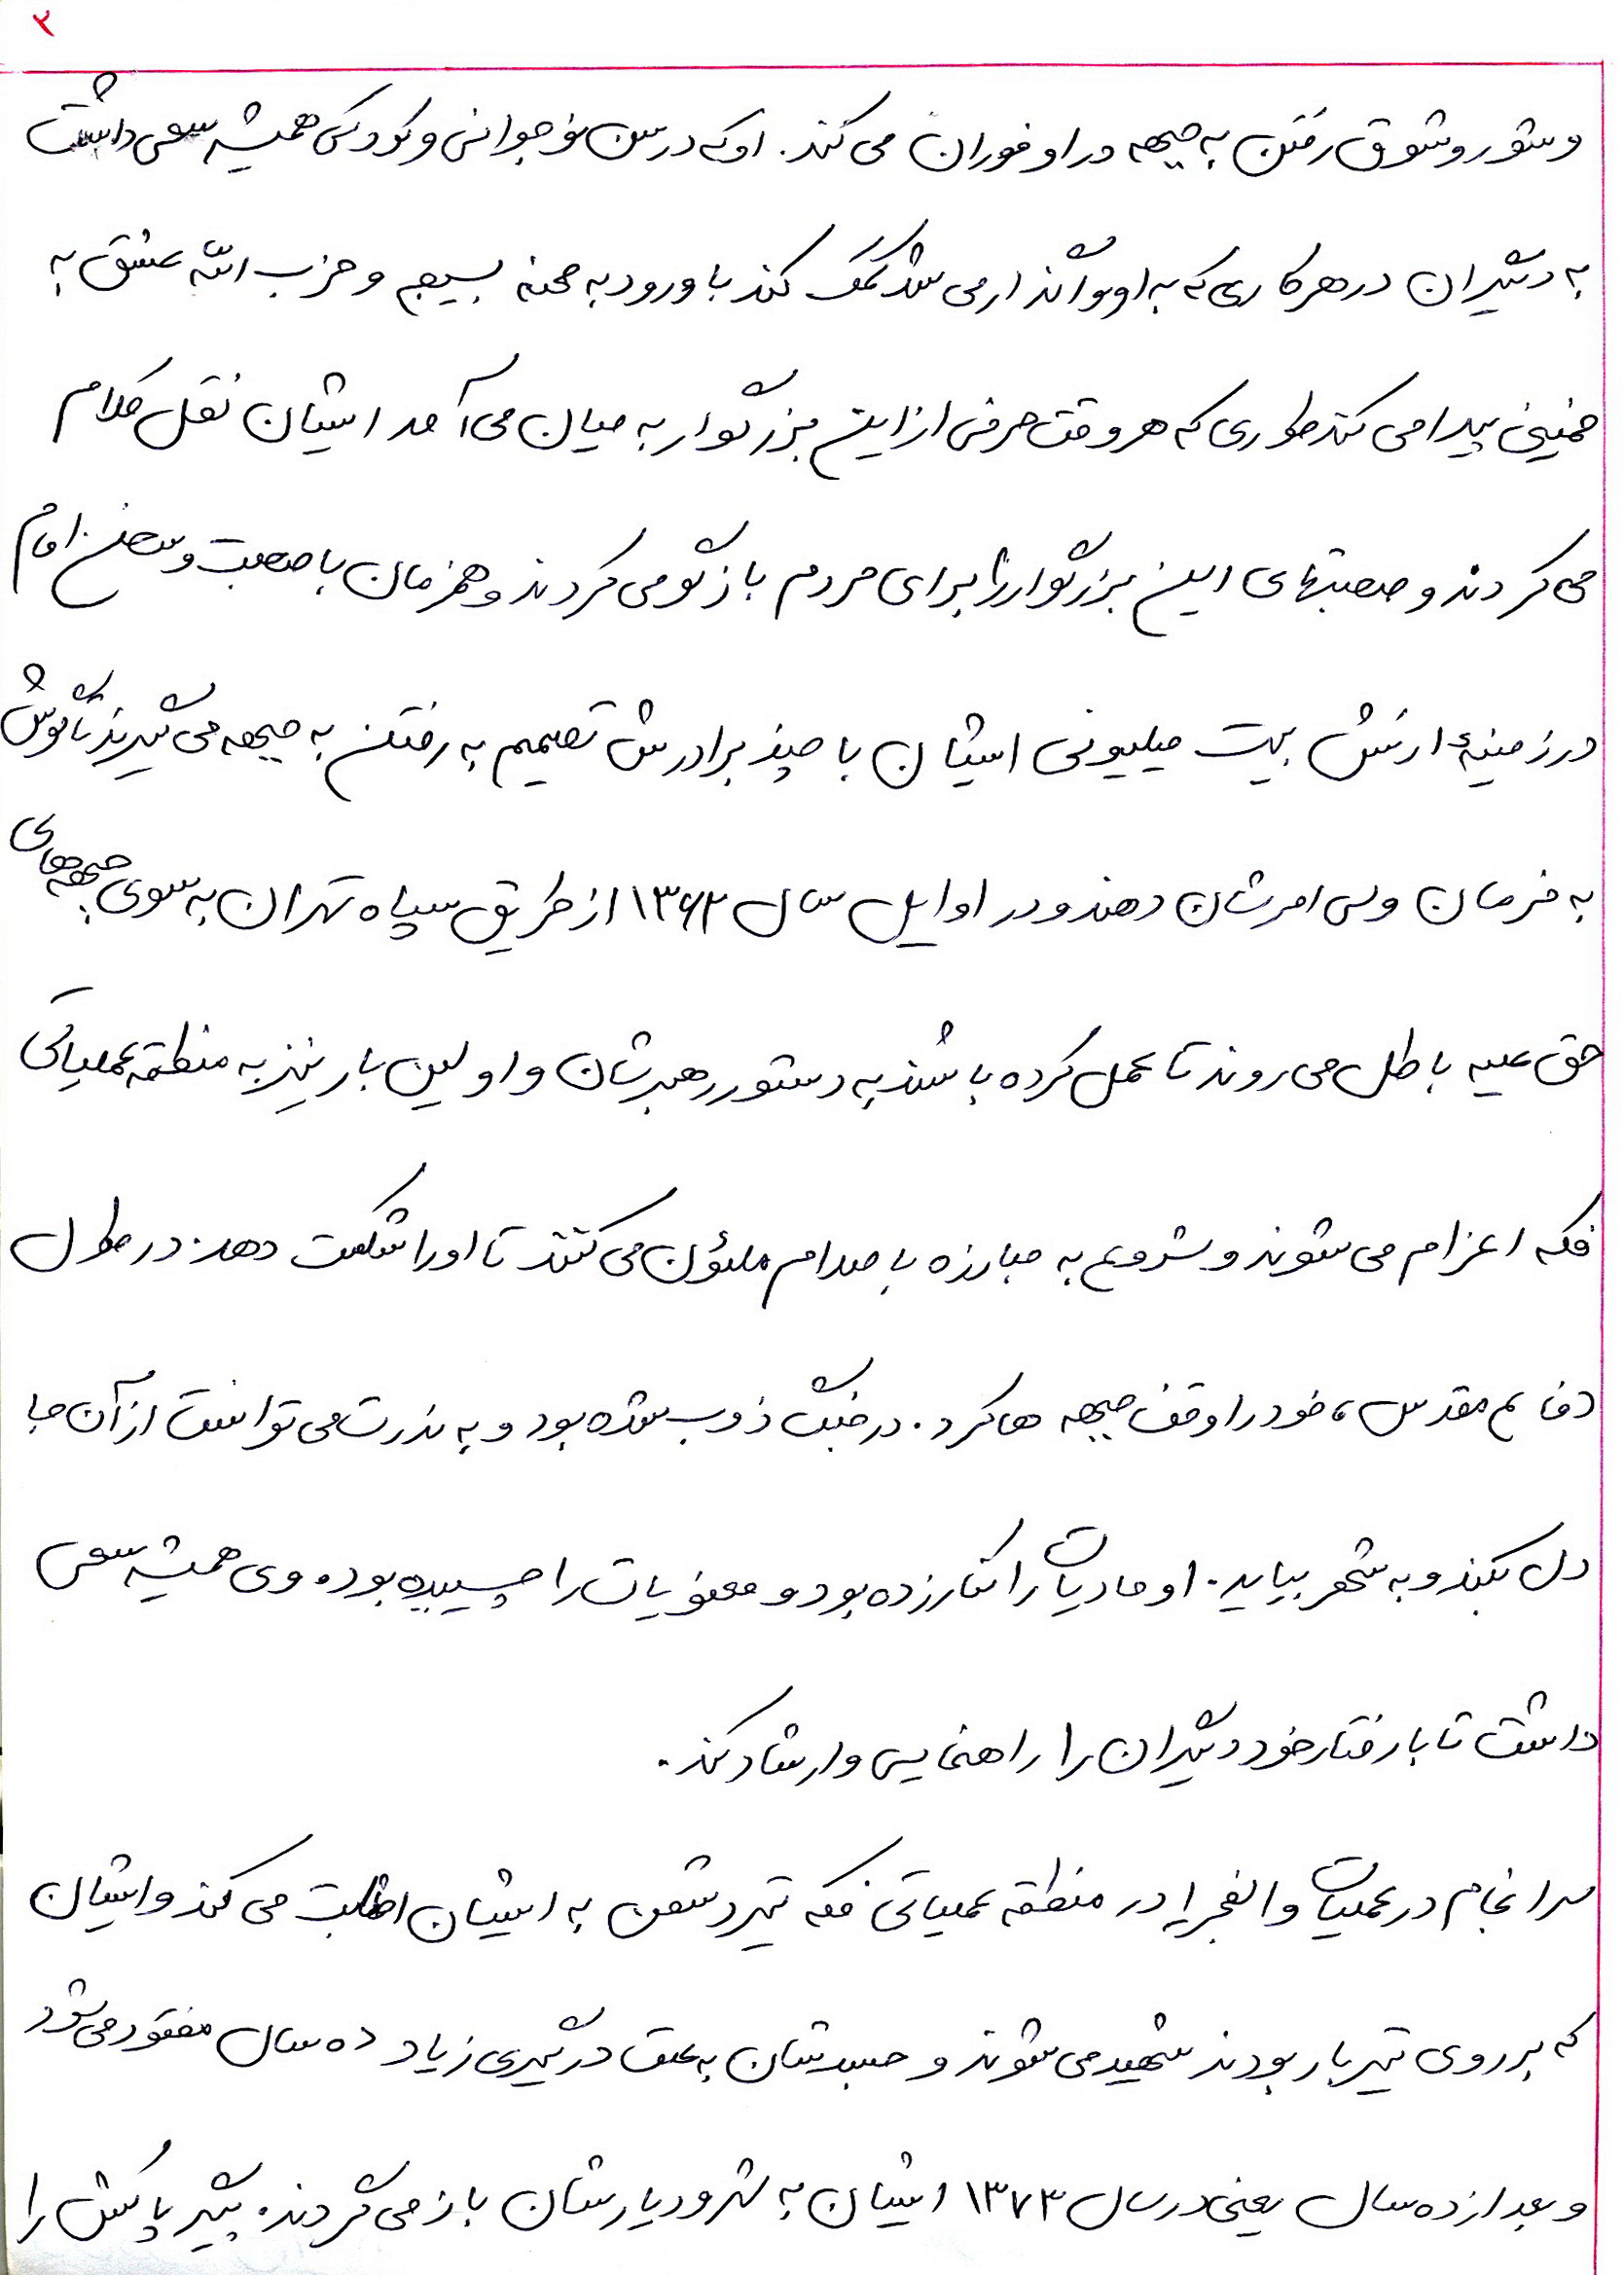 ۲
و شور و شوق رفتن به جبهه در او فوران می کند. او که در سن نوجوانی و کودکی همیشه سعی داشت
به دیگران در هر کاری که به او واگذار می شد کمک کند با ورود به صحنه بسیج و حزب الله عشق به
خمینی پیدا می کند طوری که هر وقت حرفی از این بزرگوار به میان می آمد ایشان نقل کلام
می کردند و صحبتهای این بزرگوار را برای مردم بازگو می کردند و همزمان با صحبت و سخن امام
در زمینهٔ ارتش بیت میلیونی ایشان با چند برادرش تصمیم به رفتن به جبهه می گیرند تا گوش
به فرمان ولی امرشان دهند و در اوایل سال ۱۳۶۲ از طریق سپاه تهران به سوی جبهه های
حق علیه باطل می روند تا عمل کرده باشند به دستور رهبرشان و اولین بار نیز به منطقه عملیاتی
فکه اعزام می شوند و شروع به مبارزه با صدام ملعون می کنند تا او را شکست دهد. در طول
دفاع مقدس، خود را وقف جبهه ها کرد. در جنگ ذوب شده بود و به ندرت می توانست از آن جا
دل بکند و به شهر بیاید. او مادیات را کنار زده بود و معنویات را چسبیده بود. وی همیشه سعی
داشت تا با رفتار خود دیگران را راهنمایی و ارشاد کند.
سرانجام در عملیات والفجر ۱ در منطقه عملیاتی فکه تیر دشمن به ایشان اصابت می کند و ایشان
که بر روی تیربار بودند شهید می شوند و جسدشان به علت درگیری زیاد ده سال مفقود می شود
و بعد از ده سال یعنی در سال ۱۳۷۳ ایشان به شهر و دیارشان باز می گردند. پیکر پاکش را